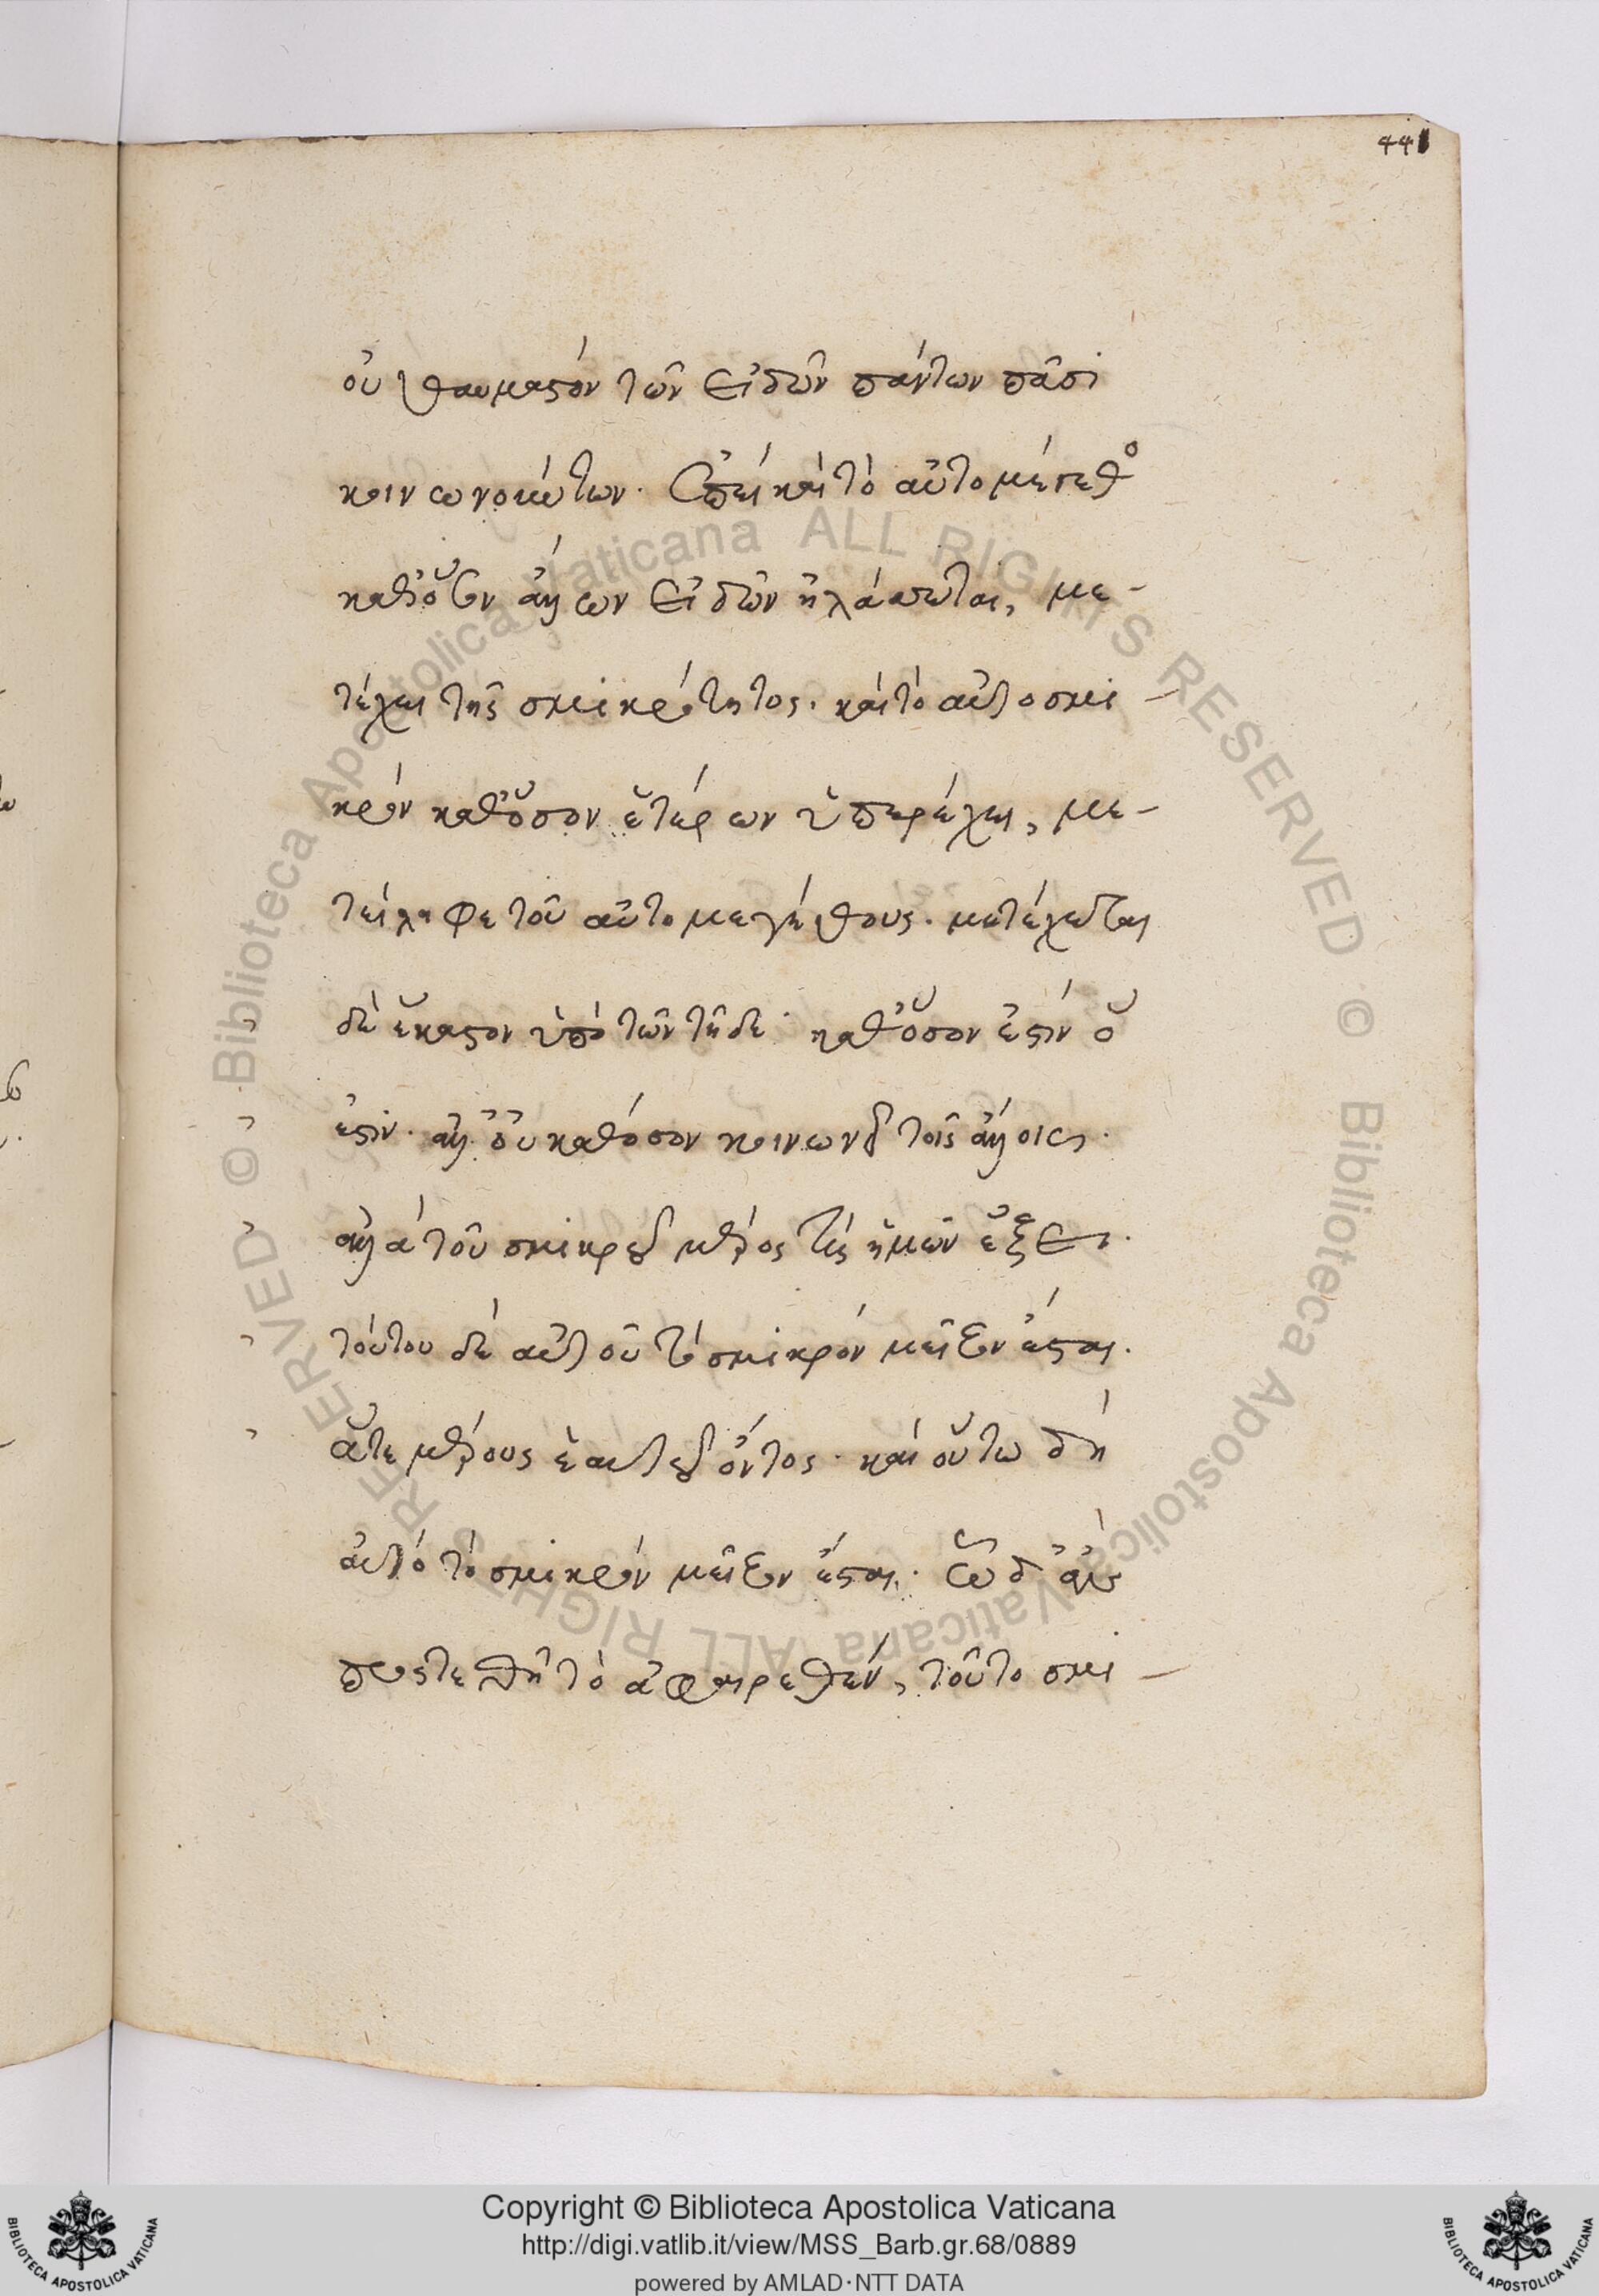 441
οὐ θαυμαστὸν τῶν εἰδῶν πάντων πᾶσι
κοινωνούντων. ἐπεὶ καὶ τὸ αὐτομέγεθος
καθ' ὅσον ἄλλων εἰδῶν ἠλάττωται, με-
τέχει τῆς σμικρότητος. καὶ τὸ αὐτοσμι-
κρὸν καθ' ὅσον ἑτέρων ὑπερέχει, με-
τείληφε τοῦ αὐτομεγέθους. μετέχεται
δὲ ἕκαστον ὑπὸ τῶν τῇδε καθ' ὅσον ἐστὶν ὅ
ἐστιν. ἀλλ' οὐ καθόσον κοινωνεῖ τοῖς ἄλλοις.
ἀλλὰ τοῦ σμικροῦ μέρος τὶς ἡμῶν ἕξει.
τούτου δὲ αὐτοῦ τὸ σμικρὸν μεῖζον ἔσται.
ἅτε μέρους ἑαυτοῦ ὄντος. καὶ οὕτω δὴ
αὐτὸ τὸ σμικρὸν μεῖζον ἔσται. ᾧ δ' ἂν
προστεθῇ τὸ ἀφαιρεθέν, τοῦτο σμι-
Copyright © Biblioteca Apostolica Vaticana
http://digi.vatlib.it/view/MSS_Barb.gr.68/0889
powered by AMLAD·NTT DATA
BIBLIOTECA APOSTOLICA VATICANA
BIBLIOTECA APOSTOLICA VATICANA
© Biblioteca Apostolica Vaticana ALL RIGHTS RESERVED
© Biblioteca Apostolica Vaticana ALL RIGHTS RESERVED